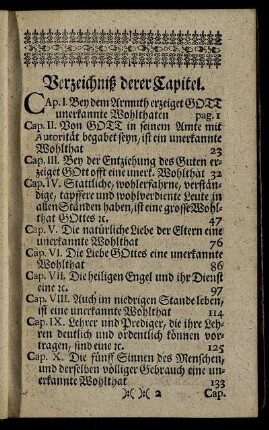 Verzeichniß derer Capitel.
CAp. I. Bey dem Armuth erzeiget GOTT
unerkannte Wohlthaten pag. 1
Cap. II. Von GOTT in seinem Amte mit
Autorität begabet seyn, ist ein unerkannte
Wohlthat 23
Cap. III. Bey der Entziehung des Guten er-
zeiget GOtt offt eine unerk. Wohlthat 32
Cap. IV. Stattliche, wohlerfahrne, verstän-
dige, tapffere und wohlverdiente Leute in
allen Ständen haben, ist eine grosse Wohl-
that GOttes ꝛc. 47
Cap. V. Die natürliche Liebe der Eltern eine
unerkannte Wohlthat 76
Cap. VI. Die Liebe GOttes eine unerkannte
Wohlthat 86
Cap. VII. Die heiligen Engel und ihr Dienst
eine ꝛc. 97
Cap. VIII. Auch im niedrigen Stande leben,
ist eine unerkannte Wohlthat 114
Cap. IX. Lehrer und Prediger, die ihre Leh-
ren deutlich und ordentlich können vor-
tragen, sind eine ꝛc. 125
Cap. X. Die fünff Sinnen des Menschen,
und derselben völliger Gebrauch eine un-
erkannte Wohlthat 133
):( ):( 2 Cap.